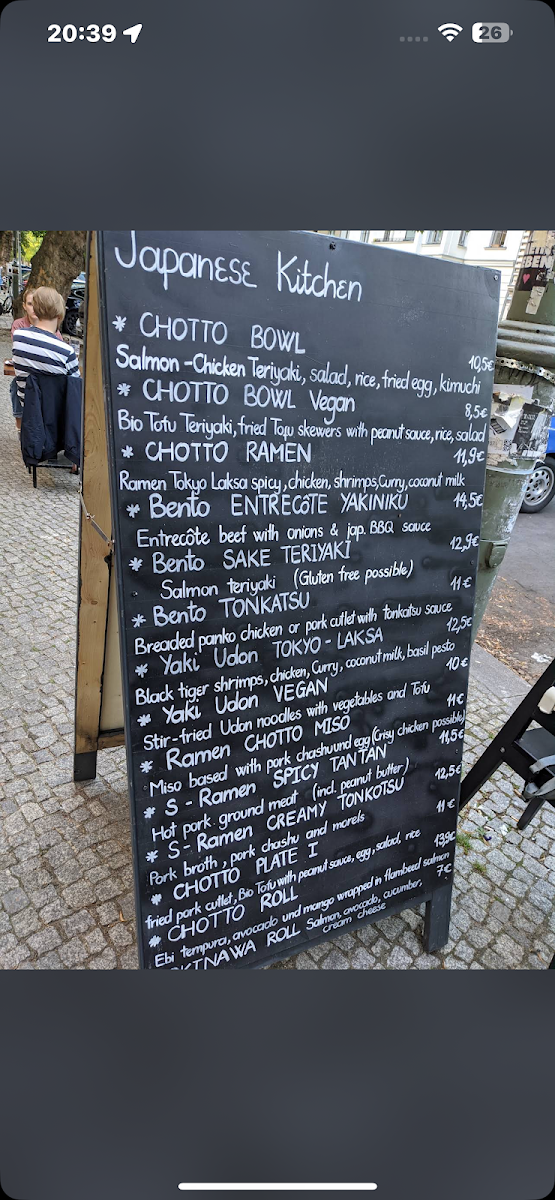 20:39
26
Japanese Kitchen
* CHOTTO BOWL
10,5€
Salmon-Chicken Teriyaki, salad, rice, fried egg, kimuchi
* CHOTTO BOWL Vegan
8,5€
Bio Tofu Teriyaki, fried Tofu skewers with peanut sauce, rice, salad
* CHOTTO RAMEN
11,9€
Ramen Tokyo Laksa spicy, chicken, shrimps, Curry, coconut milk
* Bento ENTRECôTE YAKINIKU
14,5€
Entrecôte beef with onions & jap. BBQ sauce
* Bento SAKE TERIYAKI
12,9€
Salmon teriyaki (Gluten free possible)
* Bento TONKATSU
11€
Breaded panko chicken or pork cutlet with tonkatsu sauce
* Yaki Udon TOKYO-LAKSA
12,5€
Black tiger shrimps, chicken, Curry, coconut milk, basil pesto
* Yaki Udon VEGAN
10€
Stir-fried Udon noodles with vegetables and Tofu
* Ramen CHOTTO MISO
11€
Miso based with pork chashu und egg (Crisy chicken possible)
* S-Ramen SPICY TAN TAN
11,5€
Hot pork ground meat (incl. peanut butter)
* S-Ramen CREAMY TONKOTSU
12,5€
Pork broth, pork chashu and morels
* CHOTTO PLATE I
11€
fried pork cutlet, Bio Tofu with peanut sauce, egg, salad, rice
* CHOTTO ROLL
13,9€
Ebi tempura, avocado und mango wrapped in flambeed salmon
7€
ROLL Salmon, avocado, cucumber,
cream cheese